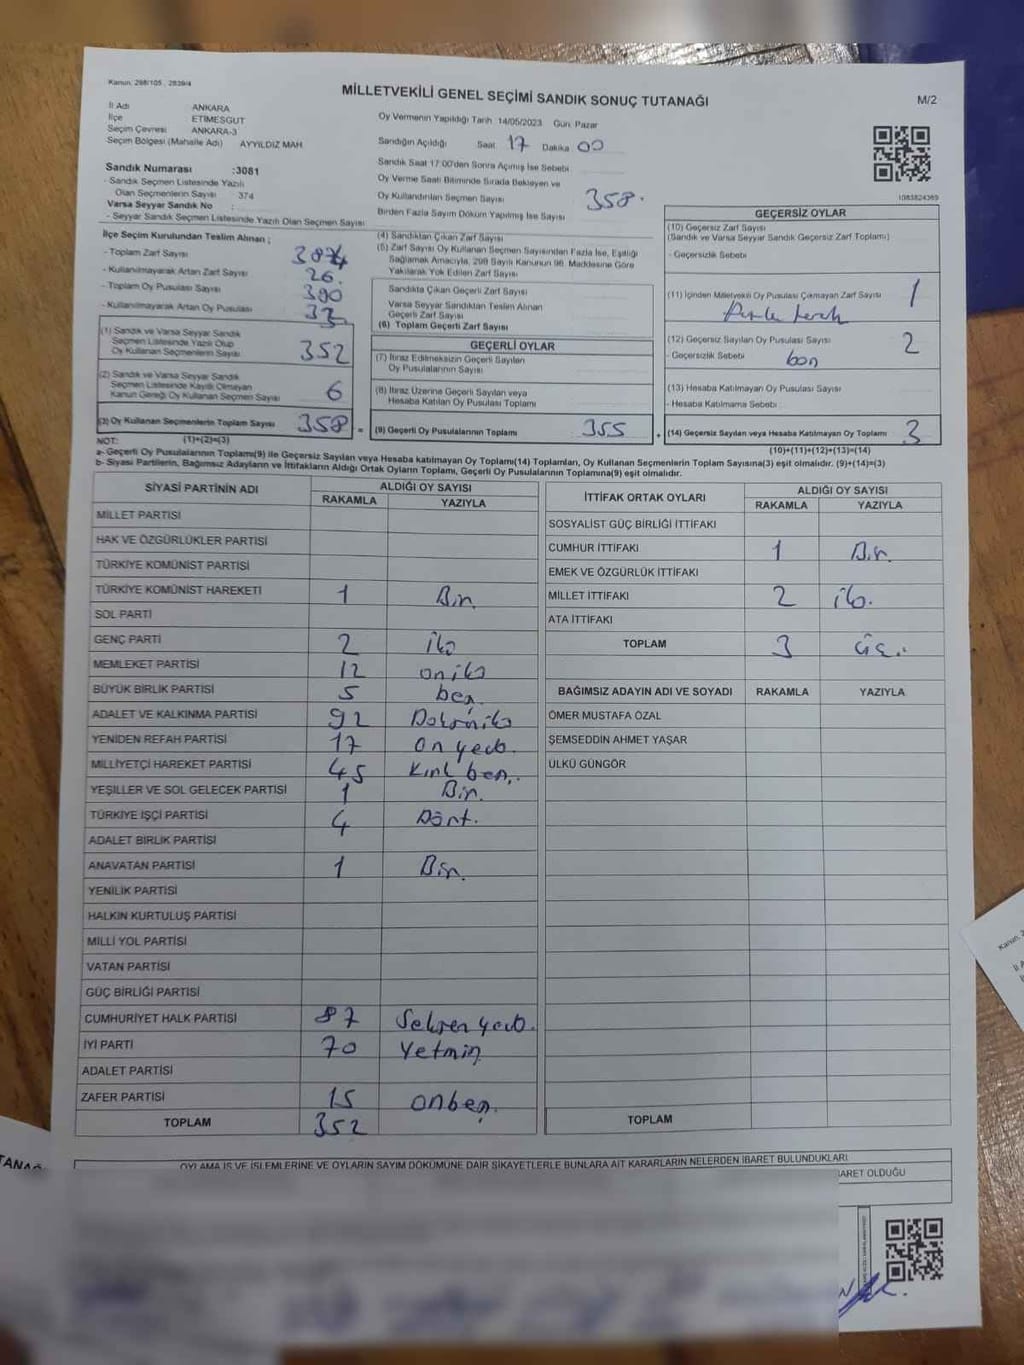 Kanun: 298/105 , 2839/4
MİLLETVEKİLİ GENEL SEÇİMİ SANDIK SONUÇ TUTANAĞI
M/2
İl Adı ANKARA
İlçe ETİMESGUT
Seçim Çevresi ANKARA-3
Seçim Bölgesi (Mahalle Adı) AYYILDIZ MAH.
Oy Vermenin Yapıldığı Tarih 14/05/2023 Gün: Pazar
Sandığın Açıldığı Saat 17 Dakika 00
Sandık Saat 17:00'den Sonra Açılmış İse Sebebi
Oy Verme Saati Bitiminde Sırada Bekleyen ve
Oy Kullandırılan Seçmen Sayısı 358.
Birden Fazla Sayım Döküm Yapılmış İse Sayısı
1083824369
Sandık Numarası :3081
- Sandık Seçmen Listesinde Yazılı
Olan Seçmenlerin Sayısı 374
Varsa Seyyar Sandık No :
- Seyyar Sandık Seçmen Listesinde Yazılı Olan Seçmen Sayısı
İlçe Seçim Kurulundan Teslim Alınan ;
- Toplam Zarf Sayısı
- Kullanılmayarak Artan Zarf Sayısı 26.
- Toplam Oy Pusulası Sayısı 390
- Kullanılmayarak Artan Oy Pusulası 32
(1) Sandık ve Varsa Seyyar Sandık
Seçmen Listesinde Yazılı Olup
Oy Kullanan Seçmenlerin Sayısı 352
(2) Sandık ve Varsa Seyyar Sandık
Seçmen Listesinde Kayıtlı Olmayan
Kanun Gereği Oy Kullanan Seçmen Sayısı 6
(3) Oy Kullanan Seçmenlerin Toplam Sayısı 358 =
(4) Sandıktan Çıkan Zarf Sayısı
(5) Zarf Sayısı Oy Kullanan Seçmen Sayısından Fazla İse, Eşitliği
Sağlamak Amacıyla, 298 Sayılı Kanunun 98. Maddesine Göre
Yakılarak Yok Edilen Zarf Sayısı
Sandıkta Çıkan Geçerli Zarf Sayısı
Varsa Seyyar Sandıktan Teslim Alınan
Geçerli Zarf Sayısı
(6) Toplam Geçerli Zarf Sayısı
GEÇERLİ OYLAR
(7) İtiraz Edilmeksizin Geçerli Sayılan
Oy Pusulalarının Sayısı
(8) İtiraz Üzerine Geçerli Sayılan veya
Hesaba Katılan Oy Pusulası Toplamı
(9) Geçerli Oy Pusulalarının Toplamı 355 +
GEÇERSİZ OYLAR
(10) Geçersiz Zarf Sayısı
(Sandık ve Varsa Seyyar Sandık Geçersiz Zarf Toplamı)
- Geçersizlik Sebebi
(11) İçinden Milletvekili Oy Pusulası Çıkmayan Zarf Sayısı 1
(12) Geçersiz Sayılan Oy Pusulası Sayısı 2
- Geçersizlik Sebebi boş
(13) Hesaba Katılmayan Oy Pusulası Sayısı
- Hesaba Katılmama Sebebi
(14) Geçersiz Sayılan veya Hesaba Katılmayan Oy Toplamı 3
NOT: (1)+(2)=(3) (10)+(11)+(12)+(13)=(14)
a- Geçerli Oy Pusulalarının Toplamı(9) ile Geçersiz Sayılan veya Hesaba katılmayan Oy Toplamı(14) Toplamları, Oy Kullanan Seçmenlerin Toplam Sayısına(3) eşit olmalıdır. (9)+(14)=(3)
b- Siyasi Partilerin, Bağımsız Adayların ve İttifakların Aldığı Ortak Oyların Toplamı, Geçerli Oy Pusulalarının Toplamına(9) eşit olmalıdır.
SİYASİ PARTİNİN ADI ALDIĞI OY SAYISI
RAKAMLA YAZIYLA
MİLLET PARTİSİ
HAK VE ÖZGÜRLÜKLER PARTİSİ
TÜRKİYE KOMÜNİST PARTİSİ
TÜRKİYE KOMÜNİST HAREKETİ 1 Bir.
SOL PARTİ
GENÇ PARTİ 2 iki
MEMLEKET PARTİSİ 12 oniki
BÜYÜK BİRLİK PARTİSİ 5 beş.
ADALET VE KALKINMA PARTİSİ 92 Doksaniki
YENİDEN REFAH PARTİSİ 17 on yedi.
MİLLİYETÇİ HAREKET PARTİSİ 45 Kırk beş.
YEŞİLLER VE SOL GELECEK PARTİSİ 1 Bir.
TÜRKİYE İŞÇİ PARTİSİ 4 Dört.
ADALET BİRLİK PARTİSİ
ANAVATAN PARTİSİ 1 Bir.
YENİLİK PARTİSİ
HALKIN KURTULUŞ PARTİSİ
MİLLİ YOL PARTİSİ
VATAN PARTİSİ
GÜÇ BİRLİĞİ PARTİSİ
CUMHURİYET HALK PARTİSİ 87 Seksen yedi.
İYİ PARTİ 70 Yetmiş
ADALET PARTİSİ
ZAFER PARTİSİ 15 onbeş.
TOPLAM 352
İTTİFAK ORTAK OYLARI ALDIĞI OY SAYISI
RAKAMLA YAZIYLA
SOSYALİST GÜÇ BİRLİĞİ İTTİFAKI
CUMHUR İTTİFAKI 1 Bir.
EMEK VE ÖZGÜRLÜK İTTİFAKI
MİLLET İTTİFAKI 2 iki.
ATA İTTİFAKI
TOPLAM 3 üç.
BAĞIMSIZ ADAYIN ADI VE SOYADI RAKAMLA YAZIYLA
ÖMER MUSTAFA ÖZAL
ŞEMSEDDİN AHMET YAŞAR
ÜLKÜ GÜNGÖR
TOPLAM
OYLAMA İŞ VE İŞLEMLERİNE VE OYLARIN SAYIM DÖKÜMÜNE DAİR ŞİKAYETLERLE BUNLARA AİT KARARLARIN NELERDEN İBARET BULUNDUKLARI
BARET OLDUĞU
TANAĞ
Kanun: 2